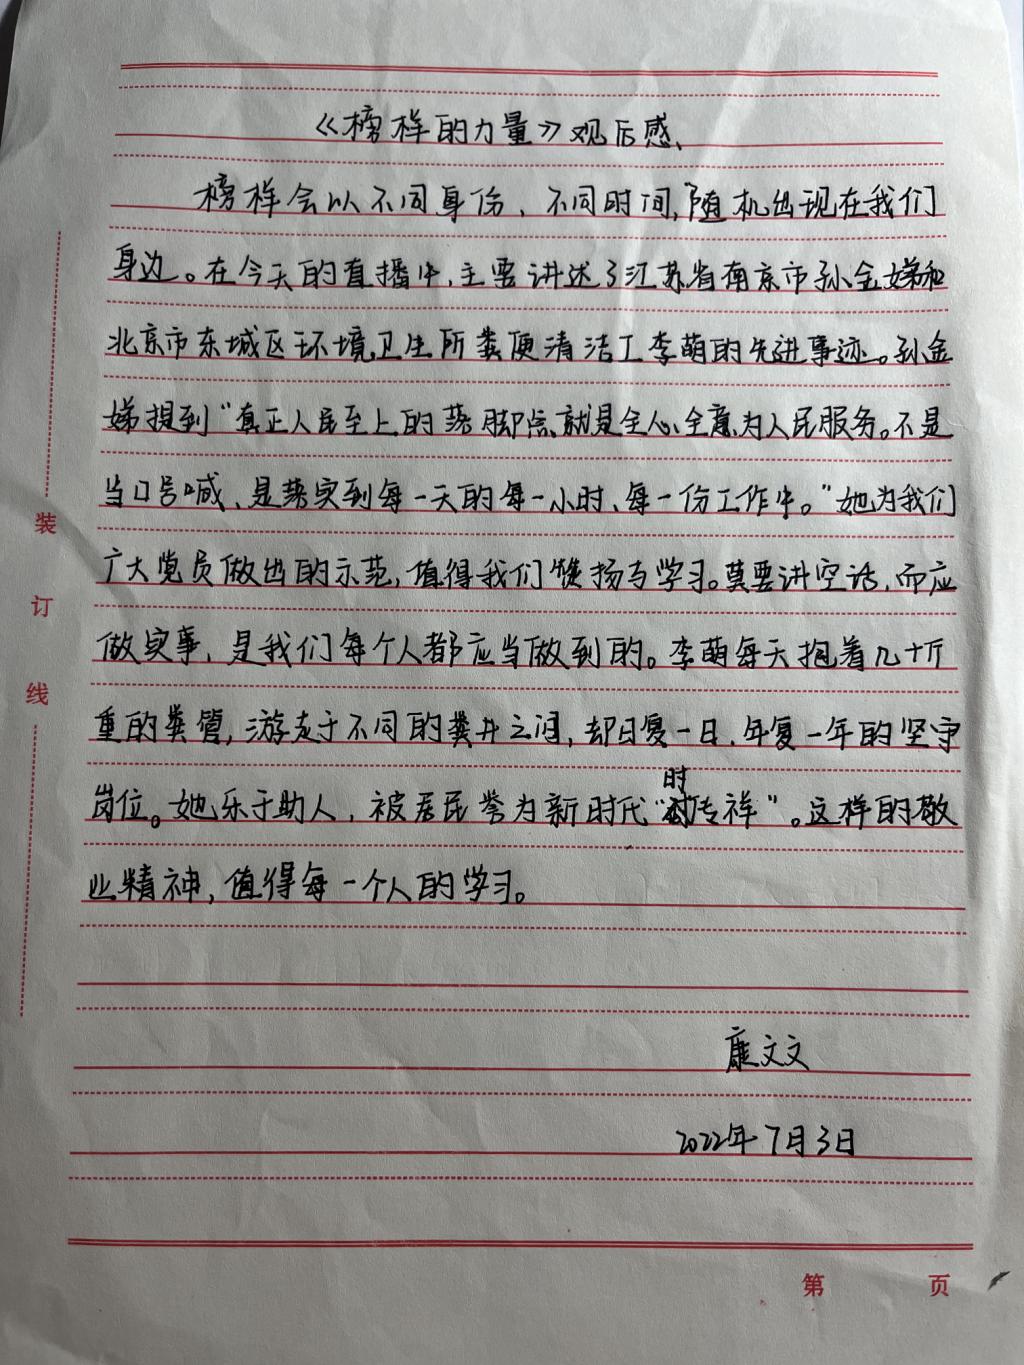 《榜样的力量》观后感、
榜样会以不同身份、不同时间,随机出现在我们
身边。在今天的直播中,主要讲述了江苏省南京市孙金娣和
北京市东城区环境卫生所粪便清洁工李萌的先进事迹。孙金
娣提到“真正人民至上的落脚点就是全心全意为人民服务。不是
当口号喊、是落实到每一天的每一小时、每一份工作中。”她为我们
广大党员做出的示范,值得我们赞扬与学习。莫要讲空话,而应
做实事,是我们每个人都应当做到的。李萌每天抱着几十斤
重的粪管,游走于不同的粪井之间,却日复一日、年复一年的坚守
岗位。她乐于助人,被居民誉为新时代“时传祥”。这样的敬
业精神,值得每一个人的学习。
文文
2022年7月3日
装
订
线
第 页